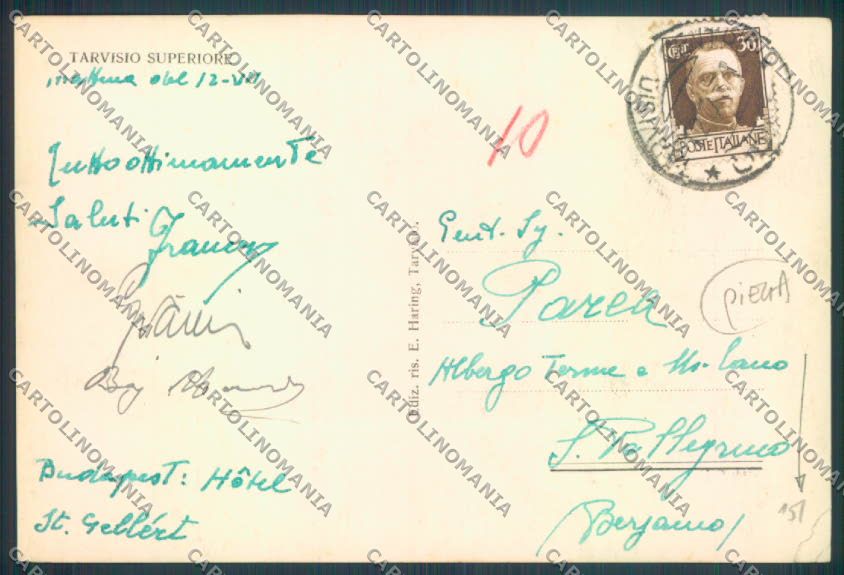 TARVISIO SUPERIORE
mattina del 12-VII
Tutto ottimamente
Saluti
Franco
Budapest: Hôtel
St. Gellért
Ediz. ris. E. Haring, Tarvisio.
10
30
POSTE ITALIANE
TARVISIO
Gent. Sg.
Parea
Albergo Terme e Milano
S. Pellegrino
(Bergamo)
PIEGA
15/
CARTOLINOMANIA